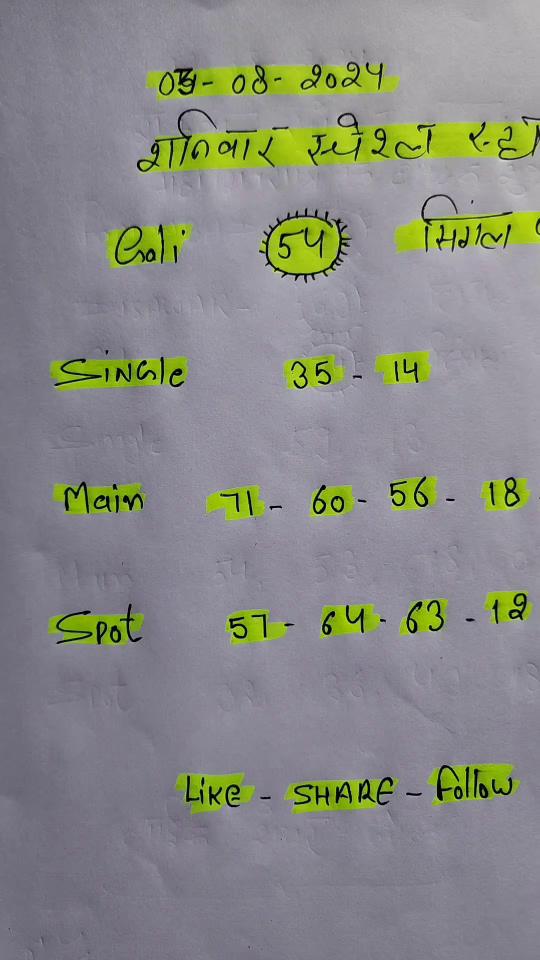 03-08-2024
शनिवार स्पेशल
Gali 54 सिंगल
Single 35 - 14
Main 71 - 60 - 56 - 18 -
Spot 57 - 64 - 63 - 12
Like - SHARE - Follow